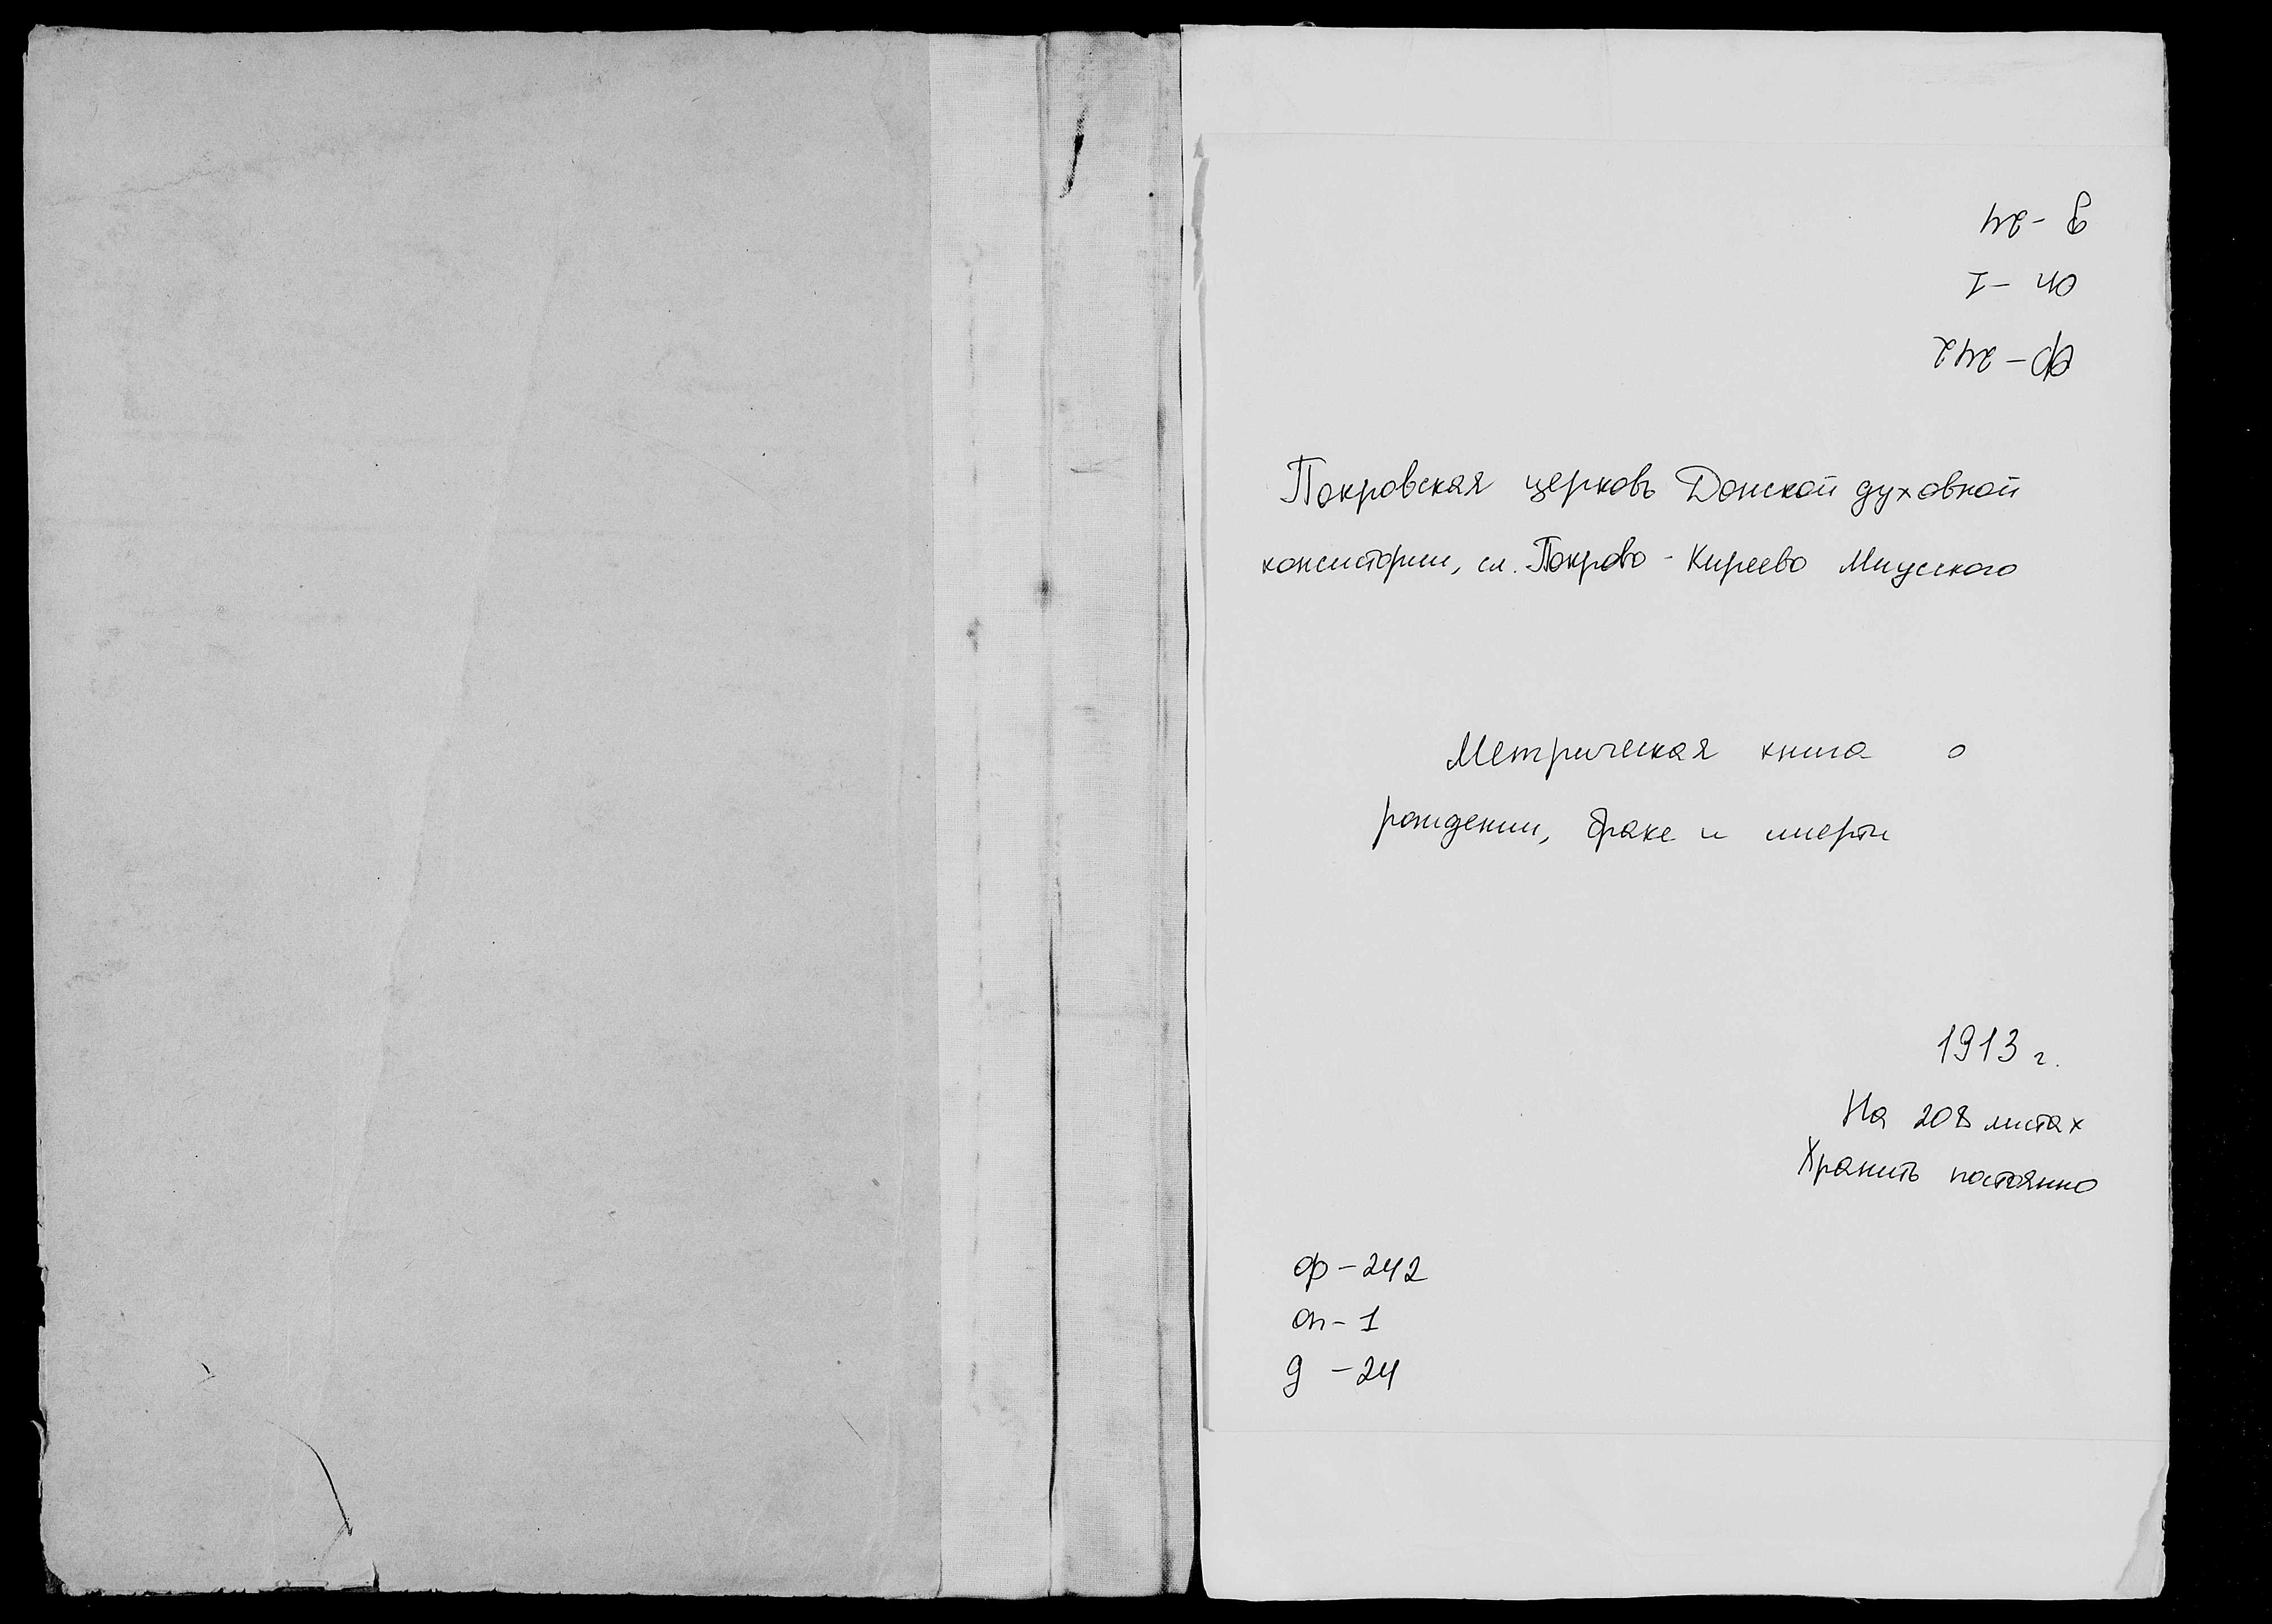 д - 24
оп - 1
Ф - 242
Покровская церковь Донской духовной
консистории, сл. Покрово - Киреево Миусского
Метрическая книга о
рождении, браке и смерти
1913 г.
На 208 листах
Хранить постоянно
ф - 242
оп - 1
д - 24